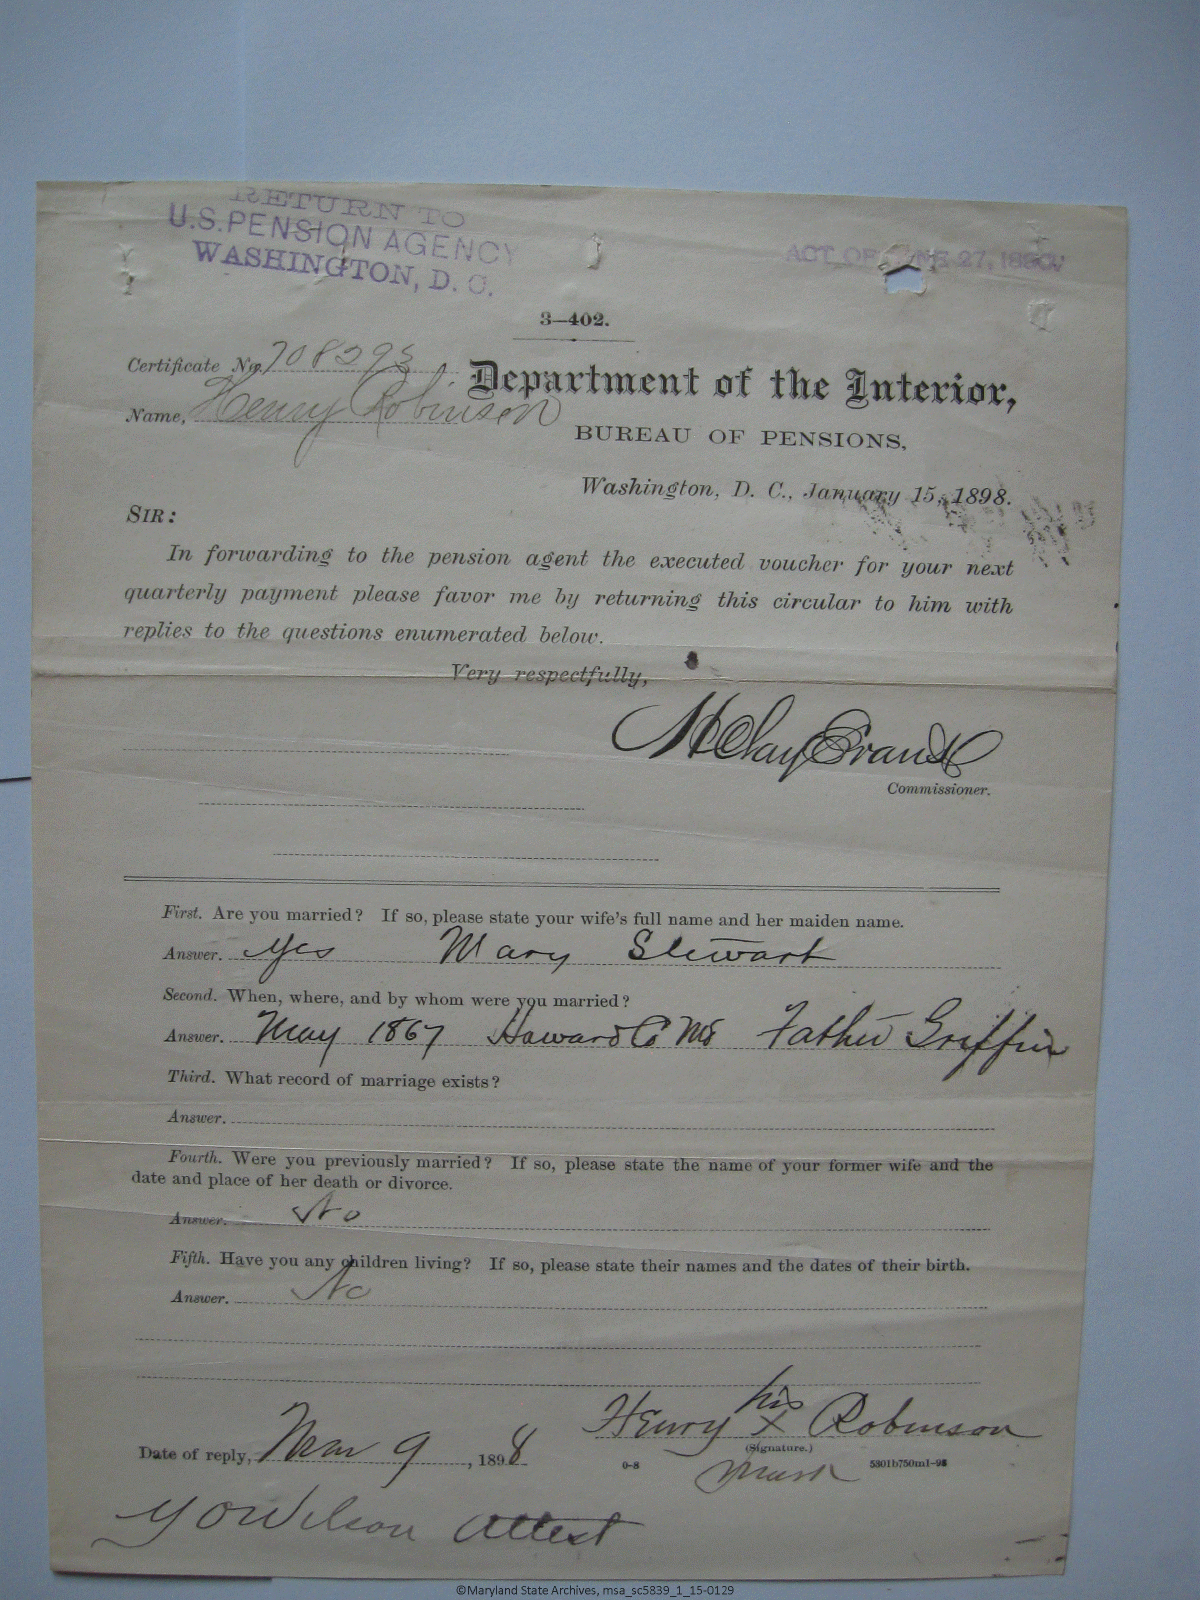 RETURN TO
U.S. PENSION AGENCY
WASHINGTON, D. C.
ACT OF JUNE 27, 1890.
3—402.
Certificate No. 708393
Name, Henry Robinson
Department of the Interior,
BUREAU OF PENSIONS,
Washington, D. C., January 15, 1898.
SIR:
In forwarding to the pension agent the executed voucher for your next
quarterly payment please favor me by returning this circular to him with
replies to the questions enumerated below.
Very respectfully,
H Clay Evans
Commissioner.
First. Are you married? If so, please state your wife's full name and her maiden name.
Answer. Yes Mary Stewart
Second. When, where, and by whom were you married?
Answer. May 1867 Howard Co Md Father Griffin
Third. What record of marriage exists?
Answer.
Fourth. Were you previously married? If so, please state the name of your former wife and the
date and place of her death or divorce.
Answer. No
Fifth. Have you any children living? If so, please state their names and the dates of their birth.
Answer. No
his
Henry X Robinson
Date of reply, Mar 9, 1898
(Signature.)
mark
0-8 5301b750m1-98
Wilson Attest
©Maryland State Archives, msa_sc5839_1_15-0129